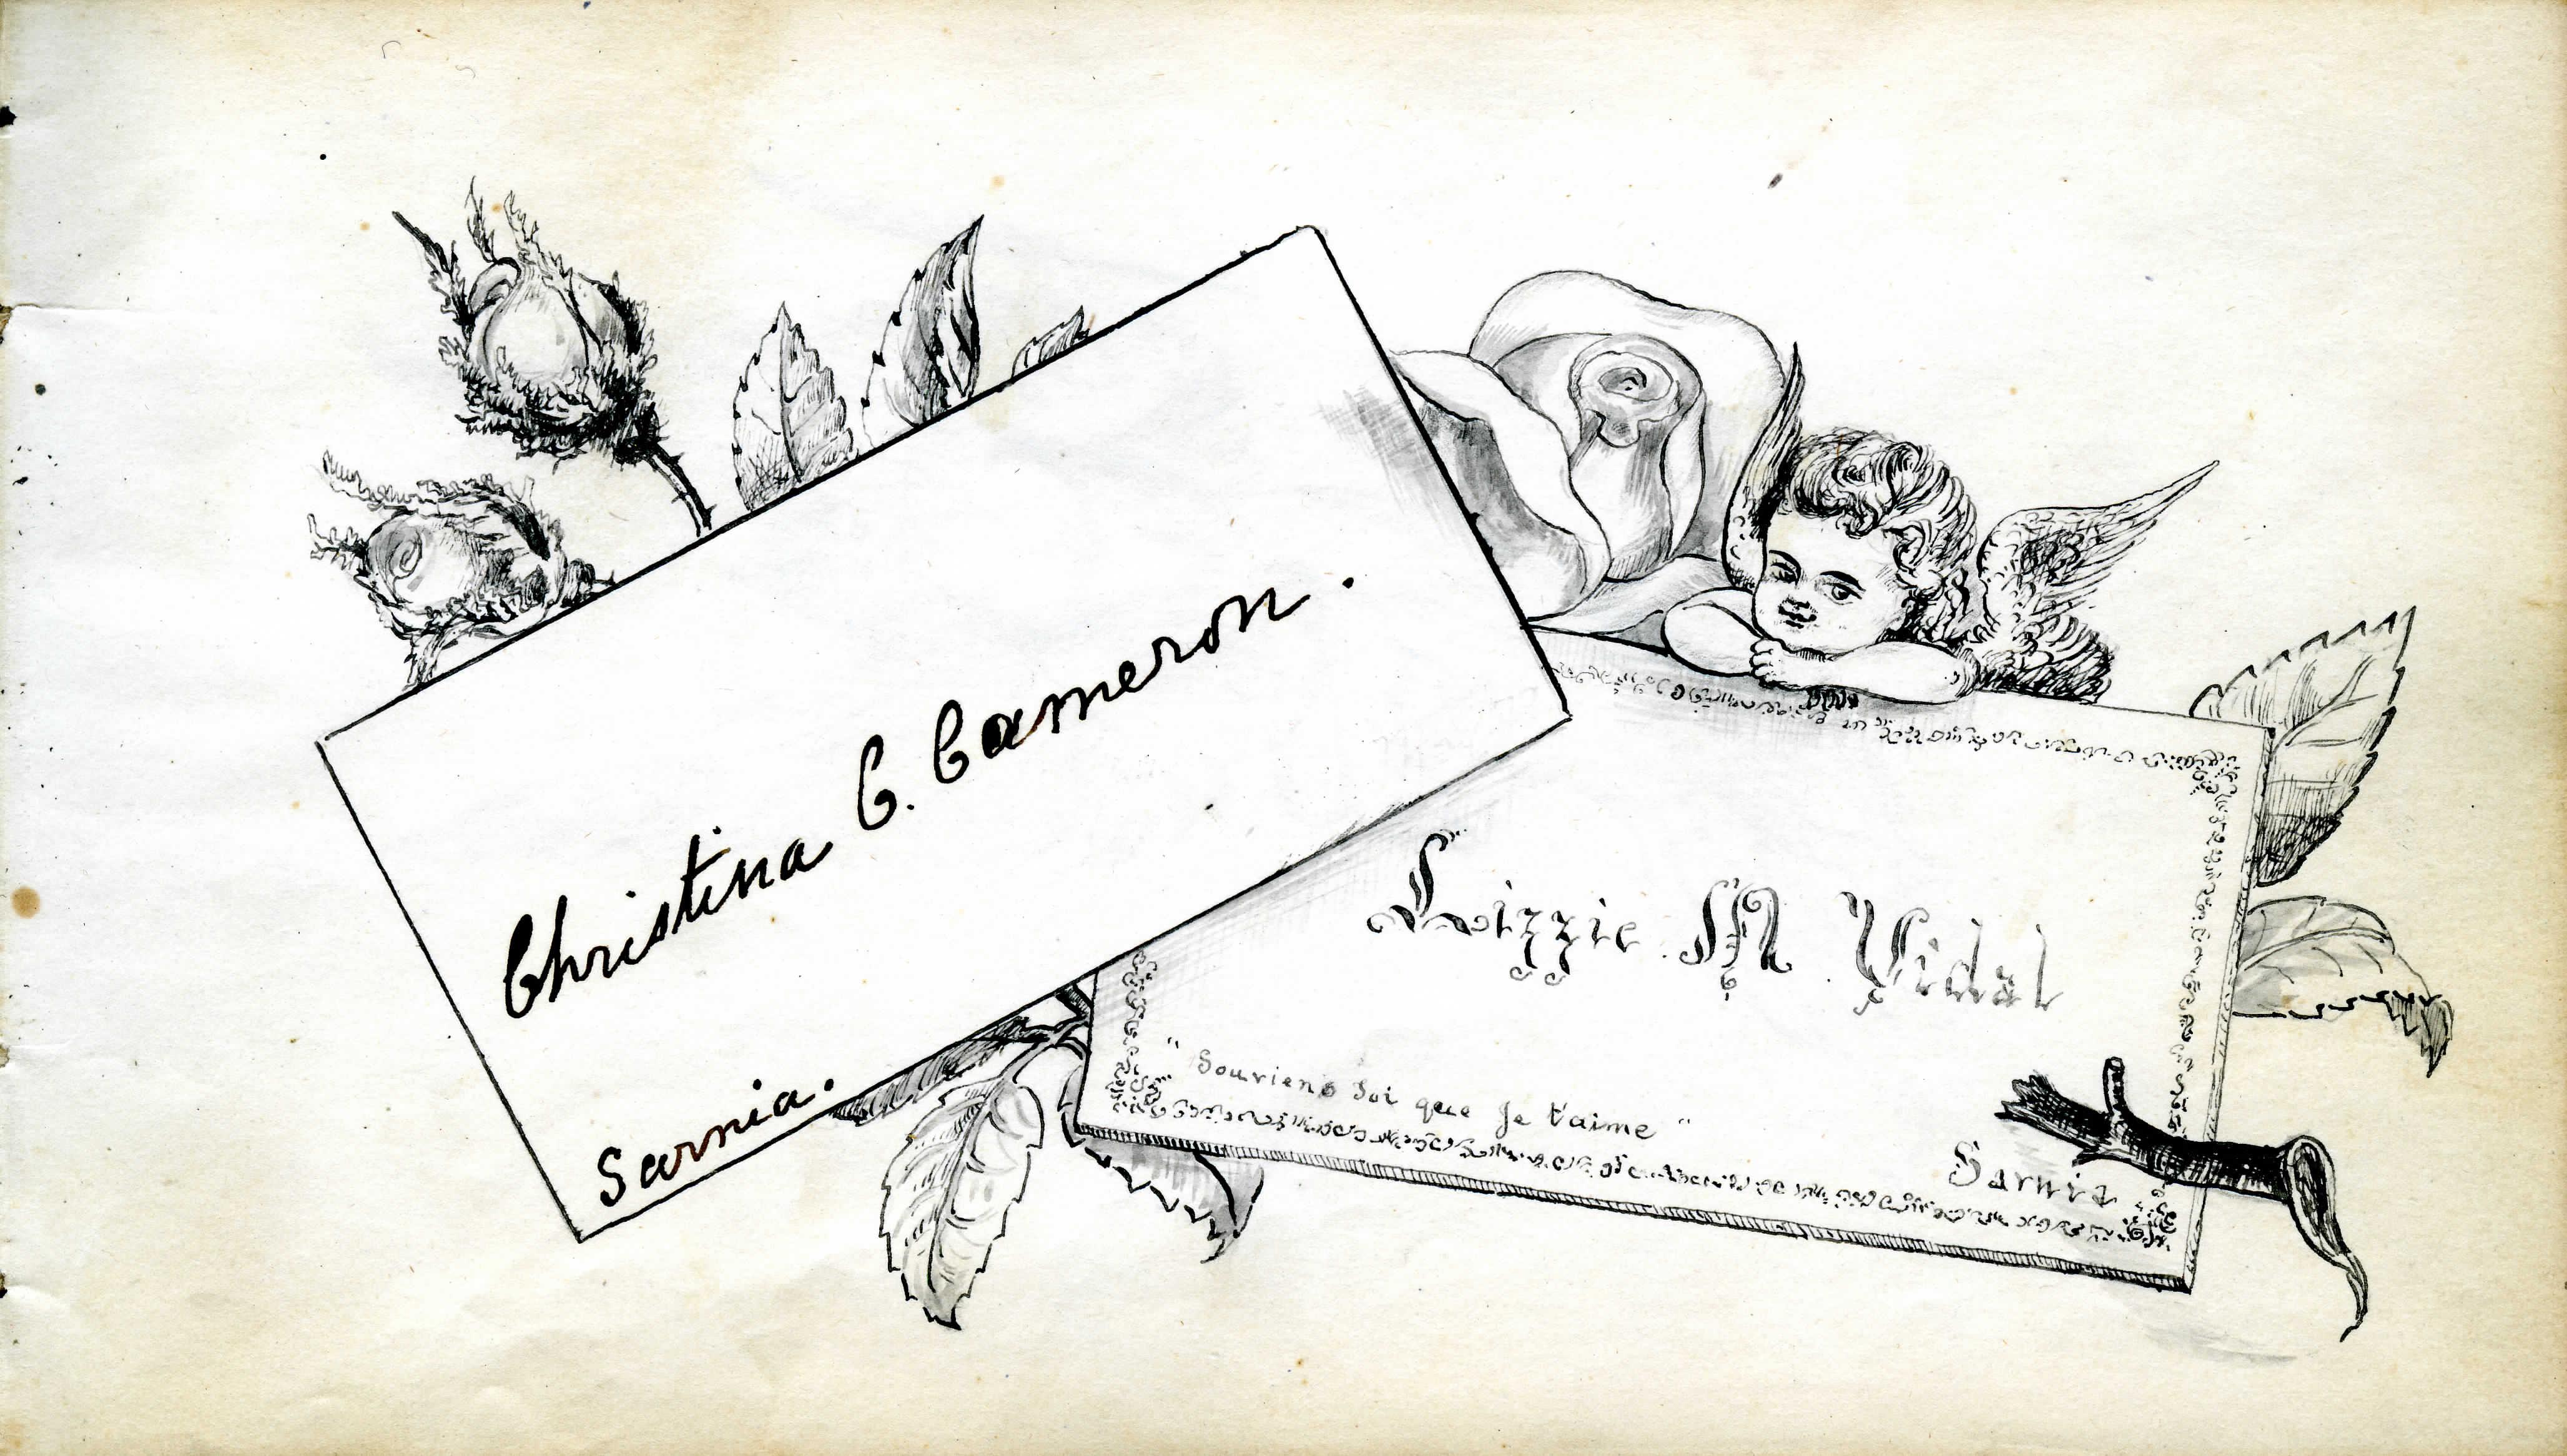 Christina C. Cameron.
Sarnia.
Lizzie M Vidal
"Souviens Toi que Je t'aime"
Sarnia